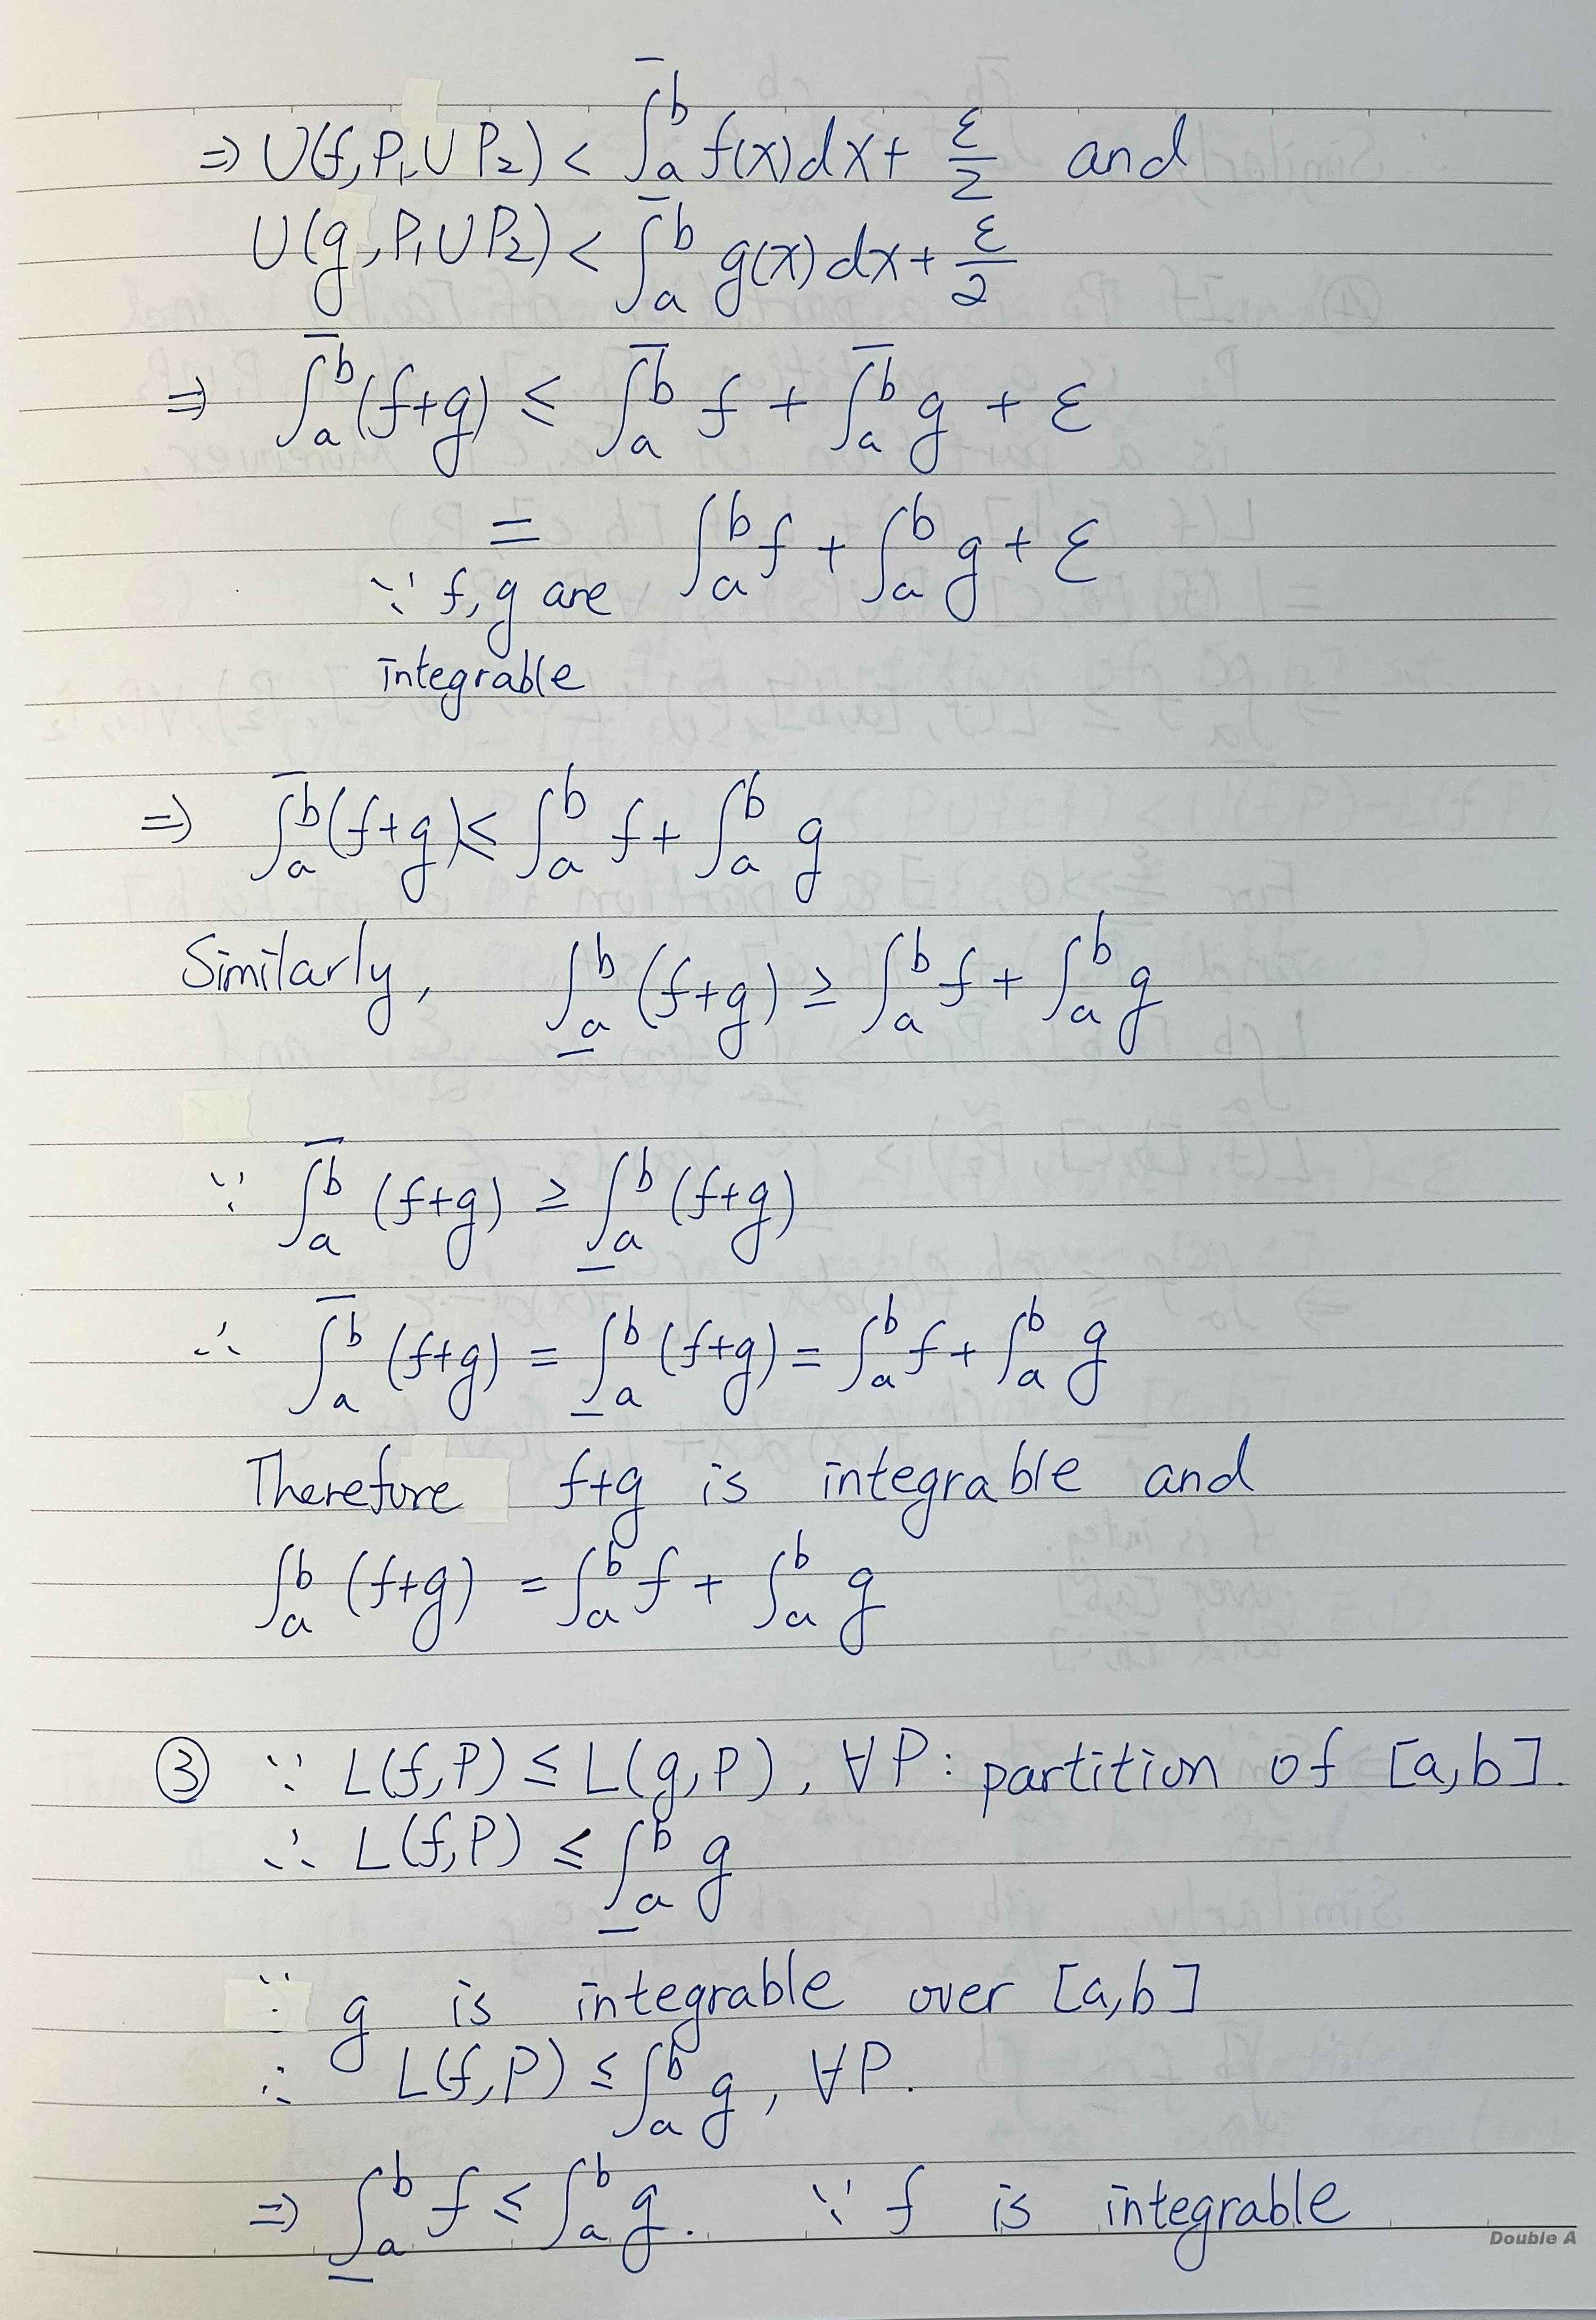 ⇒ U(f, P₁∪P₂) < \overline{∫}_a^b f(x)dx + ε/2 and
U(g, P₁∪P₂) < \overline{∫}_a^b g(x)dx + ε/2
⇒ \overline{∫}_a^b (f+g) ≤ \overline{∫}_a^b f + \overline{∫}_a^b g + ε
= ∫_a^b f + ∫_a^b g + ε
∵ f, g are
integrable
⇒ \overline{∫}_a^b (f+g) ≤ ∫_a^b f + ∫_a^b g
Similarly, \underline{∫}_a^b (f+g) ≥ ∫_a^b f + ∫_a^b g
∵ \overline{∫}_a^b (f+g) ≥ \underline{∫}_a^b (f+g)
∴ \overline{∫}_a^b (f+g) = \underline{∫}_a^b (f+g) = ∫_a^b f + ∫_a^b g
Therefore f+g is integrable and
∫_a^b (f+g) = ∫_a^b f + ∫_a^b g
③ ∵ L(f,P) ≤ L(g,P), ∀P: partition of [a,b].
∴ L(f,P) ≤ \underline{∫}_a^b g
∵ g is integrable over [a,b]
∴ L(f,P) ≤ ∫_a^b g, ∀P.
⇒ \underline{∫}_a^b f ≤ ∫_a^b g. ∵ f is integrable
Double A